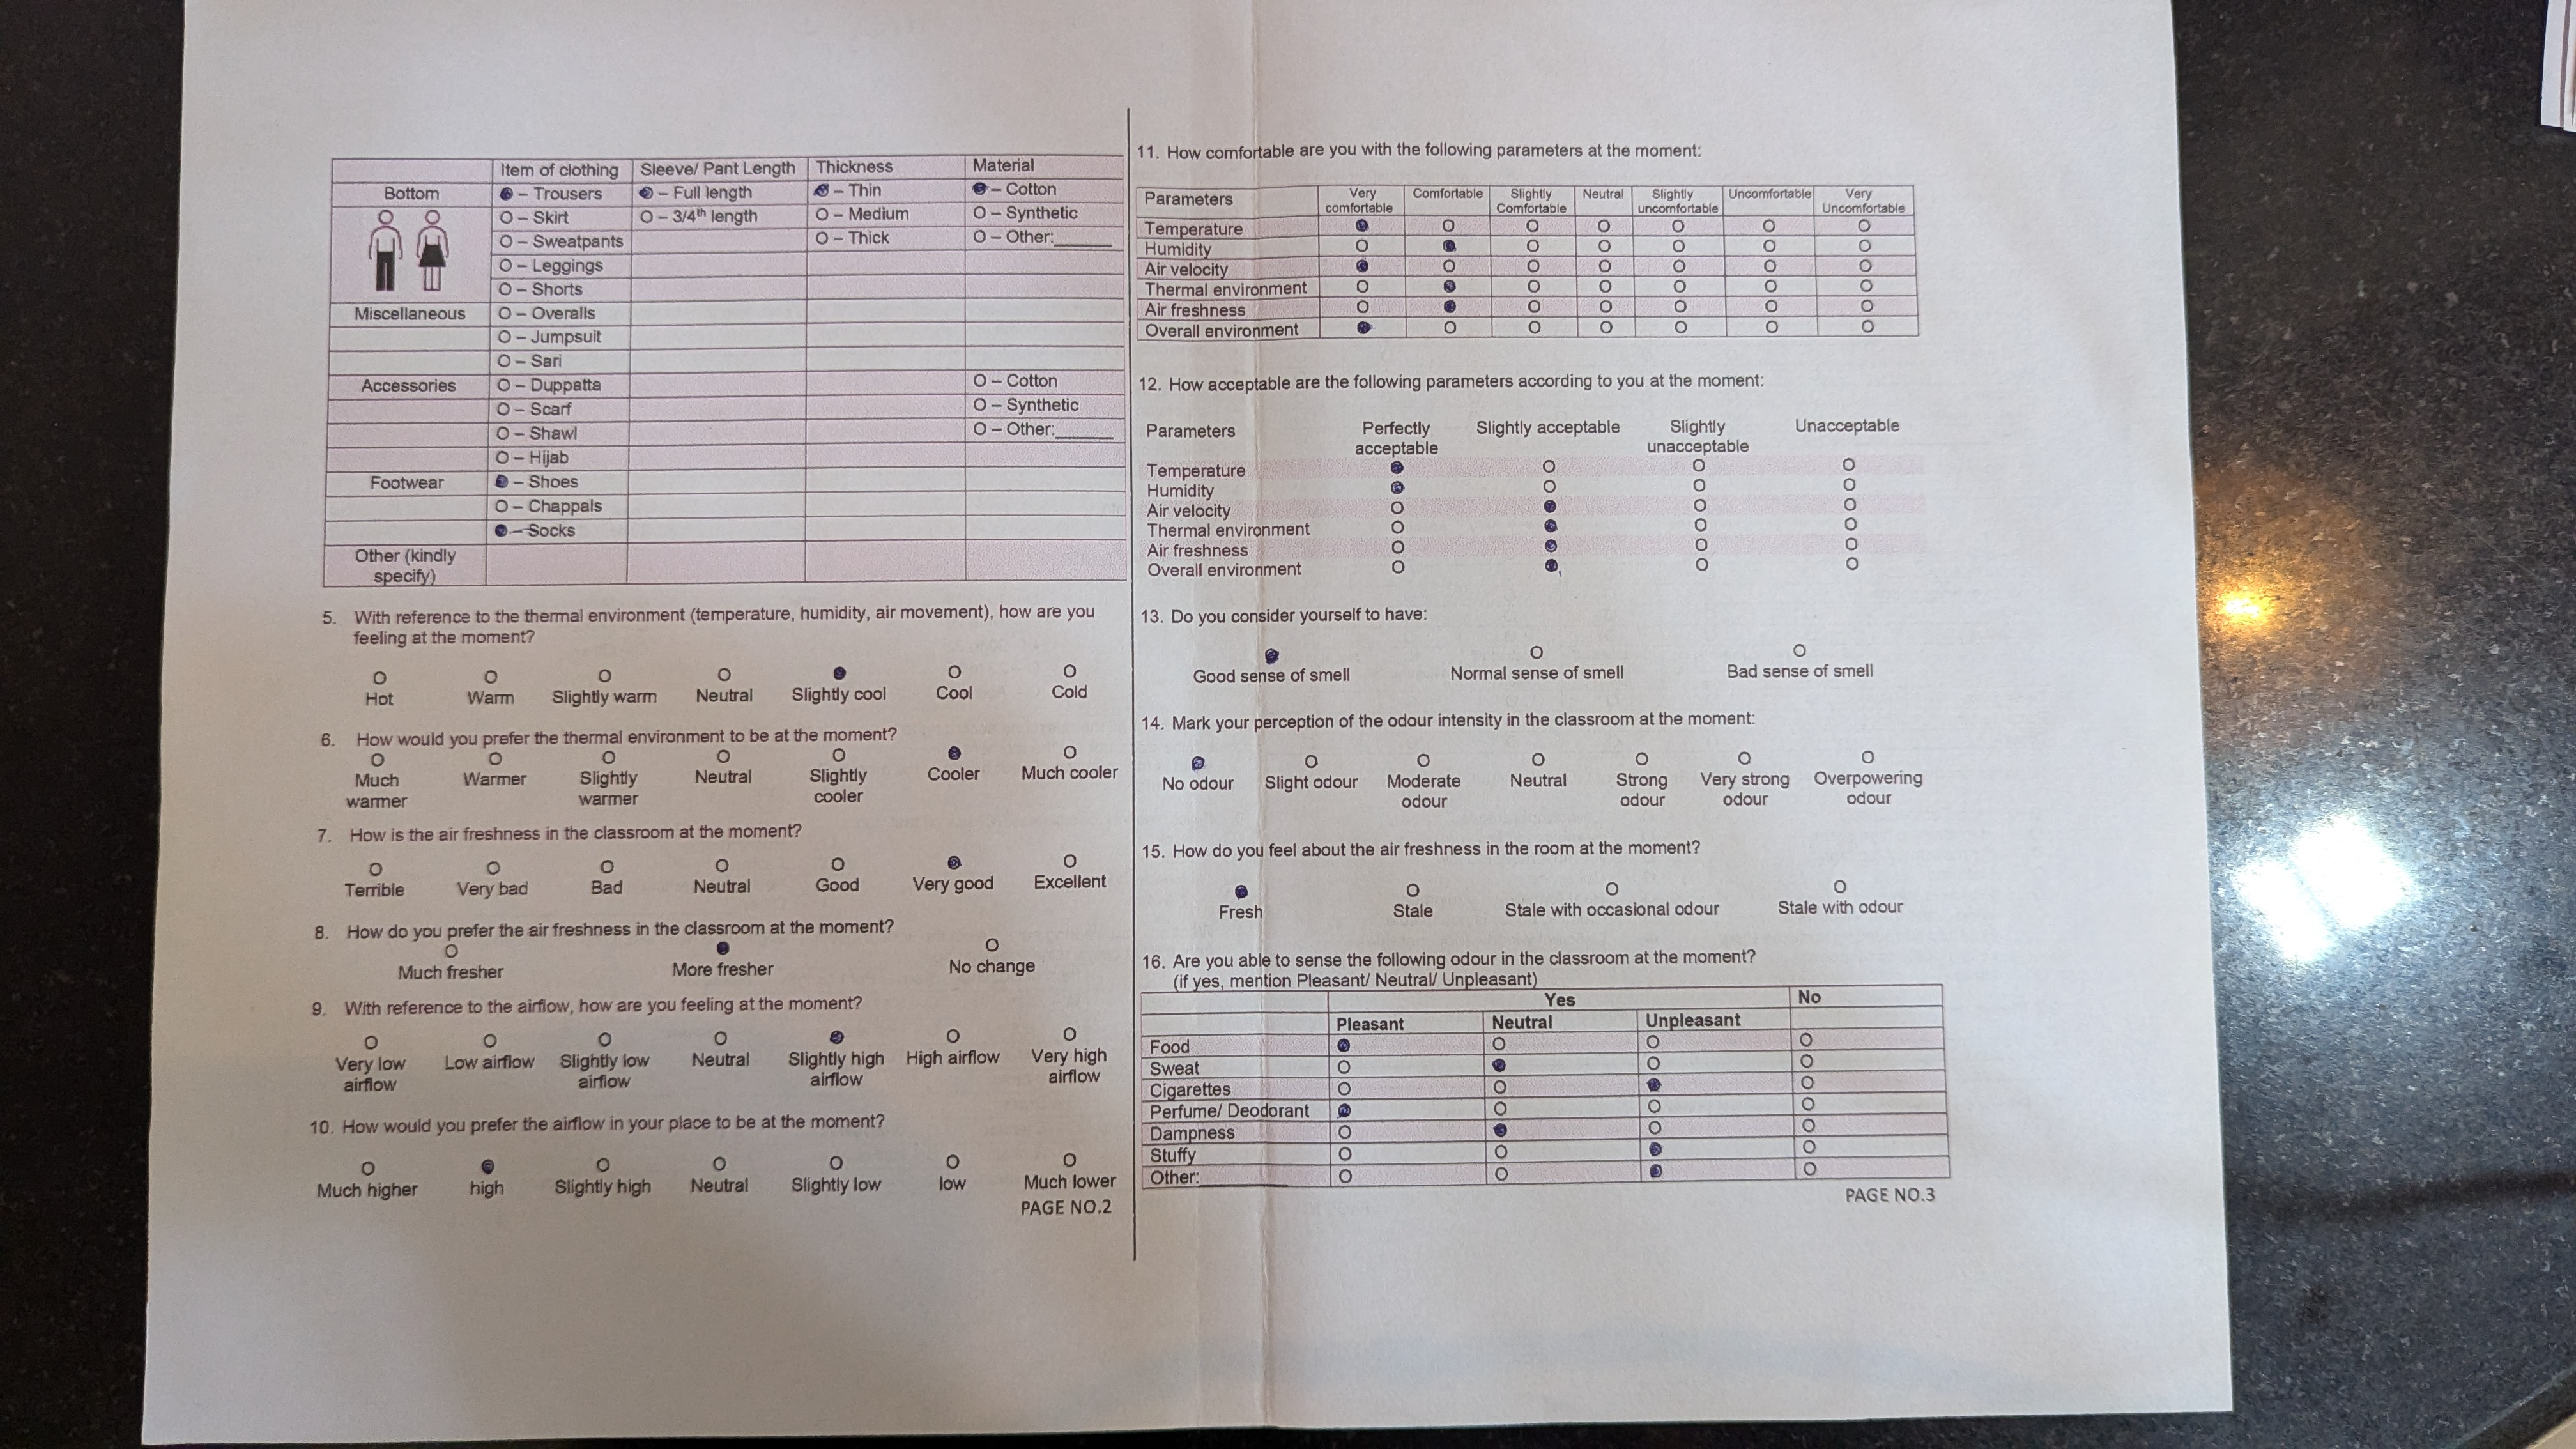 Item of clothing Sleeve/ Pant Length Thickness Material
Bottom – Trousers – Full length – Thin – Cotton
O – Skirt O – 3/4th length O – Medium O – Synthetic
O – Sweatpants O – Thick O – Other:______
O – Leggings
O – Shorts
Miscellaneous O – Overalls
O – Jumpsuit
O – Sari
Accessories O – Duppatta O – Cotton
O – Scarf O – Synthetic
O – Shawl O – Other:______
O – Hijab
Footwear – Shoes
O – Chappals
– Socks
Other (kindly
specify)
5. With reference to the thermal environment (temperature, humidity, air movement), how are you
feeling at the moment?
Hot Warm Slightly warm Neutral Slightly cool Cool Cold
6. How would you prefer the thermal environment to be at the moment?
Much Warmer Slightly Neutral Slightly Cooler Much cooler
warmer warmer cooler
7. How is the air freshness in the classroom at the moment?
Terrible Very bad Bad Neutral Good Very good Excellent
8. How do you prefer the air freshness in the classroom at the moment?
Much fresher More fresher No change
9. With reference to the airflow, how are you feeling at the moment?
Very low Low airflow Slightly low Neutral Slightly high High airflow Very high
airflow airflow airflow airflow
10. How would you prefer the airflow in your place to be at the moment?
Much higher high Slightly high Neutral Slightly low low Much lower
PAGE NO.2
11. How comfortable are you with the following parameters at the moment:
Parameters Very Comfortable Slightly Neutral Slightly Uncomfortable Very
comfortable Comfortable uncomfortable Uncomfortable
Temperature
Humidity
Air velocity
Thermal environment
Air freshness
Overall environment
12. How acceptable are the following parameters according to you at the moment:
Parameters Perfectly Slightly acceptable Slightly Unacceptable
acceptable unacceptable
Temperature
Humidity
Air velocity
Thermal environment
Air freshness
Overall environment
13. Do you consider yourself to have:
Good sense of smell Normal sense of smell Bad sense of smell
14. Mark your perception of the odour intensity in the classroom at the moment:
No odour Slight odour Moderate Neutral Strong Very strong Overpowering
odour odour odour odour
15. How do you feel about the air freshness in the room at the moment?
Fresh Stale Stale with occasional odour Stale with odour
16. Are you able to sense the following odour in the classroom at the moment?
(if yes, mention Pleasant/ Neutral/ Unpleasant)
Yes No
Pleasant Neutral Unpleasant
Food
Sweat
Cigarettes
Perfume/ Deodorant
Dampness
Stuffy
Other:_________
PAGE NO.3